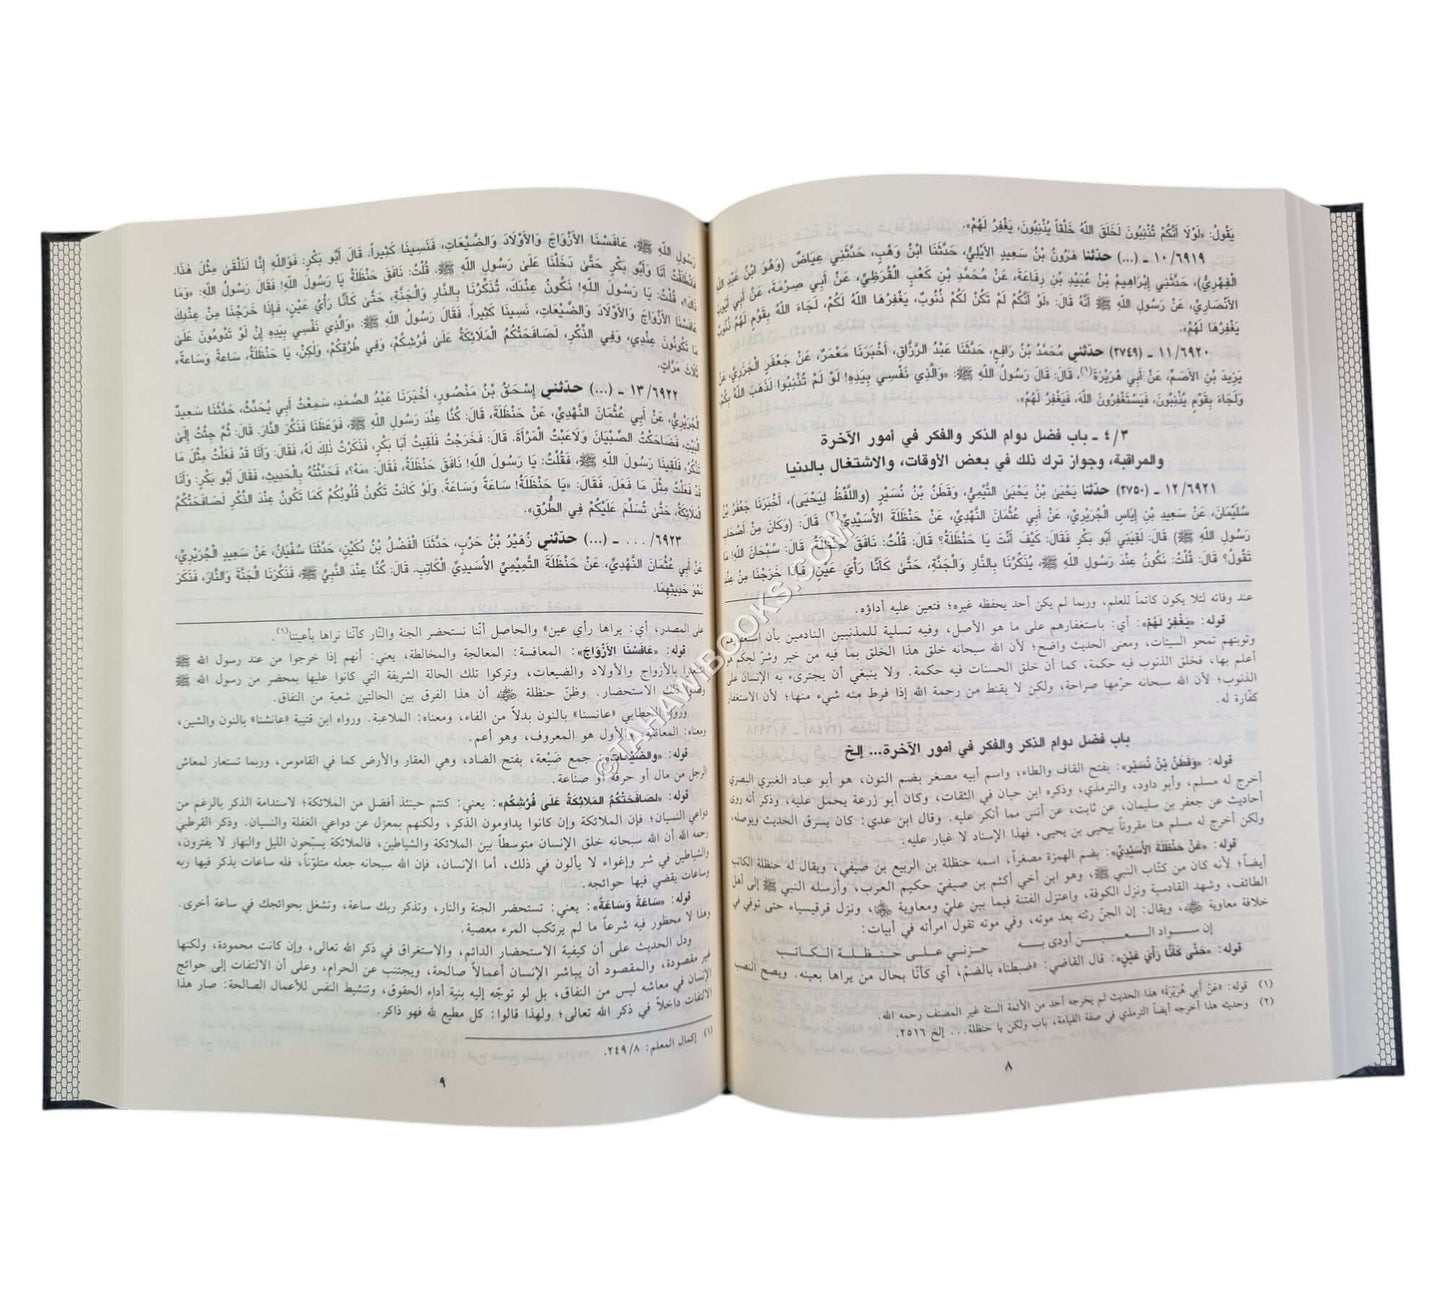 يَقُولُ: «لَوْلَا أَنَّكُمْ تُذْنِبُونَ لَخَلَقَ اللَّهُ خَلْقاً يُذْنِبُونَ، يَغْفِرُ لَهُمْ».
١٠/٦٩١٩ ـ (...) حدّثنا هَرُونُ بْنُ سَعِيدٍ الأَيْلِيُّ، حَدَّثَنَا ابْنُ وَهْبٍ، حَدَّثَنِي عِيَاضٌ (وَهُوَ ابْنُ عَبْدِ اللَّهِ
الْفِهْرِيُّ)، حَدَّثَنِي إِبْرَاهِيمُ بْنُ عُبَيْدِ بْنِ رِفَاعَةَ، عَنْ مُحَمَّدِ بْنِ كَعْبٍ الْقُرَظِيِّ، عَنْ أَبِي صِرْمَةَ، عَنْ أَبِي أَيُّوبَ
الأَنْصَارِيِّ، عَنْ رَسُولِ اللَّهِ ﷺ أَنَّهُ قَالَ: «لَوْ أَنَّكُمْ لَمْ تَكُنْ لَكُمْ ذُنُوبٌ، يَغْفِرُهَا اللَّهُ لَكُمْ، لَجَاءَ اللَّهُ بِقَوْمٍ لَهُمْ ذُنُوبٌ
يَغْفِرُهَا لَهُمْ».
١١/٦٩٢٠ ـ (٢٧٤٩) حدّثني مُحَمَّدُ بْنُ رَافِعٍ، حَدَّثَنَا عَبْدُ الرَّزَّاقِ، أَخْبَرَنَا مَعْمَرٌ، عَنْ جَعْفَرٍ الْجَزَرِيِّ، عَنْ
يَزِيدَ بْنِ الأَصَمِّ، عَنْ أَبِي هُرَيْرَةَ(١)، قَالَ: قَالَ رَسُولُ اللَّهِ ﷺ: «وَالَّذِي نَفْسِي بِيَدِهِ! لَوْ لَمْ تُذْنِبُوا لَذَهَبَ اللَّهُ بِكُمْ،
وَلَجَاءَ بِقَوْمٍ يُذْنِبُونَ، فَيَسْتَغْفِرُونَ اللَّهَ، فَيَغْفِرُ لَهُمْ».
٤/٣ ـ باب فضل دوام الذكر والفكر في أمور الآخرة
والمراقبة، وجواز ترك ذلك في بعض الأوقات، والاشتغال بالدنيا
١٢/٦٩٢١ ـ (٢٧٥٠) حدّثنا يَحْيَى بْنُ يَحْيَى التَّيْمِيُّ، وَقَطَنُ بْنُ نُسَيْرٍ (وَاللَّفْظُ لِيَحْيَى)، أَخْبَرَنَا جَعْفَرُ بْنُ
سُلَيْمَانَ، عَنْ سَعِيدِ بْنِ إِيَاسٍ الْجُرَيْرِيِّ، عَنْ أَبِي عُثْمَانَ النَّهْدِيِّ، عَنْ حَنْظَلَةَ الأُسَيِّدِيِّ(٢) قَالَ: (وَكَانَ مِنْ أَصْحَابِ
رَسُولِ اللَّهِ ﷺ) قَالَ: لَقِيَنِي أَبُو بَكْرٍ فَقَالَ: كَيْفَ أَنْتَ يَا حَنْظَلَةُ؟ قَالَ: قُلْتُ: نَافَقَ حَنْظَلَةُ قَالَ: سُبْحَانَ اللَّهِ! مَا
تَقُولُ؟ قَالَ: قُلْتُ: نَكُونُ عِنْدَ رَسُولِ اللَّهِ ﷺ، يُذَكِّرُنَا بِالنَّارِ وَالْجَنَّةِ، حَتَّى كَأَنَّا رَأْيَ عَيْنٍ، فَإِذَا خَرَجْنَا مِنْ عِنْدِ
عند وفاته لئلا يكون كاتماً للعلم، وربما لم يكن أحد يحفظه غيره؛ فتعين عليه أداؤه.
قوله: «يَغْفِرُ لَهُمْ»: أي: باستغفارهم على ما هو الأصل، وفيه تسلية للمذنبين النادمين بأن استغفارهم
وتوبتهم تمحو السيئات، ومعنى الحديث واضح؛ لأن الله سبحانه خلق هذا الخلق بما فيه من خير وشرّ لحكم هو
أعلم بها، فخلق الذنوب فيه حكمة، كما أن خلق الحسنات فيه حكمة. ولا ينبغي أن يجترىء به الإنسان على
الذنوب؛ لأن الله سبحانه حرّمها صراحة، ولكن لا يقنط من رحمة الله إذا فرط منه شيء منها؛ لأن الاستغفار
كفّارة له.
باب فضل دوام الذكر والفكر في أمور الآخرة... إلخ
قوله: «وَقَطَنُ بْنُ نُسَيْرٍ»: بفتح القاف والطاء، واسم أبيه مصغر بضم النون، هو أبو عباد الغبري البصري
أخرج له مسلم، وأبو داود، والترمذي، وذكره ابن حبان في الثقات، وكان أبو زرعة يحمل عليه، وذكر أنه روى
أحاديث عن جعفر بن سليمان، عن ثابت، عن أنس مما أنكر عليه. وقال ابن عدي: كان يسرق الحديث ويوصله،
ولكن أخرج له مسلم هنا مقروناً بيحيى بن يحيى، فهذا الإسناد لا غبار عليه.
قوله: «عَنْ حَنْظَلَةَ الأُسَيِّدِيِّ»: بضم الهمزة مصغراً، اسمه حنظلة بن الربيع بن صيفي، ويقال له حنظلة الكاتب
أيضاً؛ لأنه كان من كتّاب النبي ﷺ، وهو ابن أخي أكثم بن صيفيّ حكيم العرب، وأرسله النبي ﷺ إلى أهل
الطائف، وشهد القادسية ونزل الكوفة، واعتزل الفتنة فيما بين عليّ ومعاوية ﵄، ونزل قرقيسياء حتى توفي في
خلافة معاوية ﵁، ويقال: إن الجنّ رثته بعد موته، وفي موته تقول امرأته في أبيات:
إن سواد العين أودى به حزني على حنظلة الكاتب
قوله: «حَتَّى كَأَنَّا رَأْيَ عَيْنٍ»: قال القاضي: «ضبطناه بالضمّ، أي كأنّا بحال من يراها بعينه. ويصح النصب
(١) قوله: «عَنْ أَبِي هُرَيْرَةَ» هذا الحديث لم يخرجه أحد من الأئمة الستة غير المصنف رحمه الله.
(٢) وحديثه هذا أخرجه أيضاً الترمذي في صفة القيامة، باب ولكن يا حنظلة... إلخ ٢٥١٦.
٨
رَسُولِ اللَّهِ ﷺ، عَافَسْنَا الأَزْوَاجَ وَالأَوْلَادَ وَالضَّيْعَاتِ، فَنَسِينَا كَثِيراً. قَالَ أَبُو بَكْرٍ: فَوَاللَّهِ إِنَّا لَنَلْقَى مِثْلَ هَذَا.
فَانْطَلَقْتُ أَنَا وَأَبُو بَكْرٍ حَتَّى دَخَلْنَا عَلَى رَسُولِ اللَّهِ ﷺ. قُلْتُ: نَافَقَ حَنْظَلَةُ يَا رَسُولَ اللَّهِ! فَقَالَ رَسُولُ اللَّهِ: «وَمَا
ذَاكَ؟» قُلْتُ: يَا رَسُولَ اللَّهِ! نَكُونُ عِنْدَكَ، تُذَكِّرُنَا بِالنَّارِ وَالْجَنَّةِ، حَتَّى كَأَنَّا رَأْيَ عَيْنٍ، فَإِذَا خَرَجْنَا مِنْ عِنْدِكَ
عَافَسْنَا الأَزْوَاجَ وَالأَوْلَادَ وَالضَّيْعَاتِ، نَسِينَا كَثِيراً. فَقَالَ رَسُولُ اللَّهِ ﷺ: «وَالَّذِي نَفْسِي بِيَدِهِ إِنْ لَوْ تَدُومُونَ عَلَى
مَا تَكُونُونَ عِنْدِي، وَفِي الذِّكْرِ، لَصَافَحَتْكُمُ الْمَلَائِكَةُ عَلَى فُرُشِكُمْ، وَفِي طُرُقِكُمْ، وَلَكِنْ، يَا حَنْظَلَةُ، سَاعَةً وَسَاعَةً»
ثَلَاثَ مَرَّاتٍ.
١٣/٦٩٢٢ ـ (...) حدّثني إِسْحَقُ بْنُ مَنْصُورٍ، أَخْبَرَنَا عَبْدُ الصَّمَدِ، سَمِعْتُ أَبِي يُحَدِّثُ، حَدَّثَنَا سَعِيدٌ
الْجُرَيْرِيُّ، عَنْ أَبِي عُثْمَانَ النَّهْدِيِّ، عَنْ حَنْظَلَةَ، قَالَ: كُنَّا عِنْدَ رَسُولِ اللَّهِ ﷺ، فَوَعَظَنَا فَذَكَّرَ النَّارَ. قَالَ: ثُمَّ جِئْتُ إِلَى
الْبَيْتِ، فَضَاحَكْتُ الصِّبْيَانَ وَلَاعَبْتُ الْمَرْأَةَ. قَالَ: فَخَرَجْتُ فَلَقِيتُ أَبَا بَكْرٍ، فَذَكَرْتُ ذَلِكَ لَهُ، فَقَالَ: وَأَنَا قَدْ فَعَلْتُ مِثْلَ مَا
تَذْكُرُ، فَلَقِينَا رَسُولَ اللَّهِ ﷺ، فَقُلْتُ: يَا رَسُولَ اللَّهِ! نَافَقَ حَنْظَلَةُ، فَقَالَ: «مَهْ؟» فَحَدَّثْتُهُ بِالْحَدِيثِ، فَقَالَ أَبُو بَكْرٍ: وَأَنَا
قَدْ فَعَلْتُ مِثْلَ مَا فَعَلَ. فَقَالَ: «يَا حَنْظَلَةُ! سَاعَةً وَسَاعَةً. وَلَوْ كَانَتْ تَكُونُ قُلُوبُكُمْ كَمَا تَكُونُ عِنْدَ الذِّكْرِ لَصَافَحَتْكُمُ
الْمَلَائِكَةُ، حَتَّى تُسَلِّمَ عَلَيْكُمْ فِي الطُّرُقِ».
٦٩٢٣/... ـ (...) حدّثني زُهَيْرُ بْنُ حَرْبٍ، حَدَّثَنَا الْفَضْلُ بْنُ دُكَيْنٍ، حَدَّثَنَا سُفْيَانُ، عَنْ سَعِيدٍ الْجُرَيْرِيِّ،
عَنْ أَبِي عُثْمَانَ النَّهْدِيِّ، عَنْ حَنْظَلَةَ التَّمِيمِيِّ الأُسَيِّدِيِّ الْكَاتِبِ. قَالَ: كُنَّا عِنْدَ النَّبِيِّ ﷺ، فَذَكَّرَنَا الْجَنَّةَ وَالنَّارَ، فَذَكَرَ
نَحْوَ حَدِيثِهِمَا.
على المصدر، أي: يراها رأي عين» والحاصل أنّنا نستحضر الجنة والنّار كأنّنا نراها بأعيننا(١).
قوله: «عَافَسْنَا الأَزْوَاجَ»: المعافسة: المعالجة والمخالطة، يعني: أنهم إذا خرجوا من عند رسول الله ﷺ
بالأزواج والأولاد والضيعات، وتركوا تلك الحالة الشريفة التي كانوا عليها بمحضر من رسول الله ﷺ
الاستحضار. وظنّ حنظلة ﵁ أن هذا الفرق بين الحالتين شعبة من النفاق.
ورواه الخطابي «عانسنا» بالنون بدلاً من الفاء، ومعناه: الملاعبة. ورواه ابن قتيبة «عانشنا» بالنون والشين،
ومعناه: والأول هو المعروف، وهو أعم.
قوله: «وَالضَّيْعَاتِ»: جمع ضَيْعَة، بفتح الضاد، وهي العقار والأرض كما في القاموس، وربما تستعار لمعاش
الرجل من مال أو حرفة أو صناعة.
قوله: «لَصَافَحَتْكُمُ المَلَائِكَةُ عَلَى فُرُشِكُم»: يعني: كنتم حينئذ أفضل من الملائكة؛ لاستدامة الذكر بالرغم من
دواعي النسيان؛ فإن الملائكة وإن كانوا يداومون الذكر، ولكنهم بمعزل عن دواعي الغفلة والنسيان. وذكر القرطبي
رحمه الله أن الله سبحانه خلق الإنسان متوسطاً بين الملائكة والشياطين، فالملائكة يسبّحون الليل والنهار لا يفترون،
والشياطين في شر وإغواء لا يألون في ذلك، أما الإنسان، فإن الله سبحانه جعله متلوّناً، فله ساعات يذكر فيها ربه
وساعات يقضي فيها حوائجه.
قوله: «سَاعَةً وَسَاعَةً»: يعني: تستحضر الجنة والنار، وتذكر ربك ساعة، وتشغل بحوائجك في ساعة أخرى.
وهذا لا محظور فيه شرعاً ما لم يرتكب المرء معصية.
ودل الحديث على أن كيفية الاستحضار الدائم، والاستغراق في ذكر الله تعالى، وإن كانت محمودة، ولكنها
غير مقصودة، والمقصود أن يباشر الإنسان أعمالاً صالحة، ويجتنب عن الحرام، وعلى أن الالتفات إلى حوائج
الإنسان في معاشه ليس من النفاق، بل لو توجّه إليه بنية أداء الحقوق، وتنشيط النفس للأعمال الصالحة: صار هذا
الالتفات داخلاً في ذكر الله تعالى؛ ولهذا قالوا: كل مطيع لله فهو ذاكر.
(١) إكمال المعلم: ٢٤٩/٨.
٩
© TAHAWIBOOKS.COM